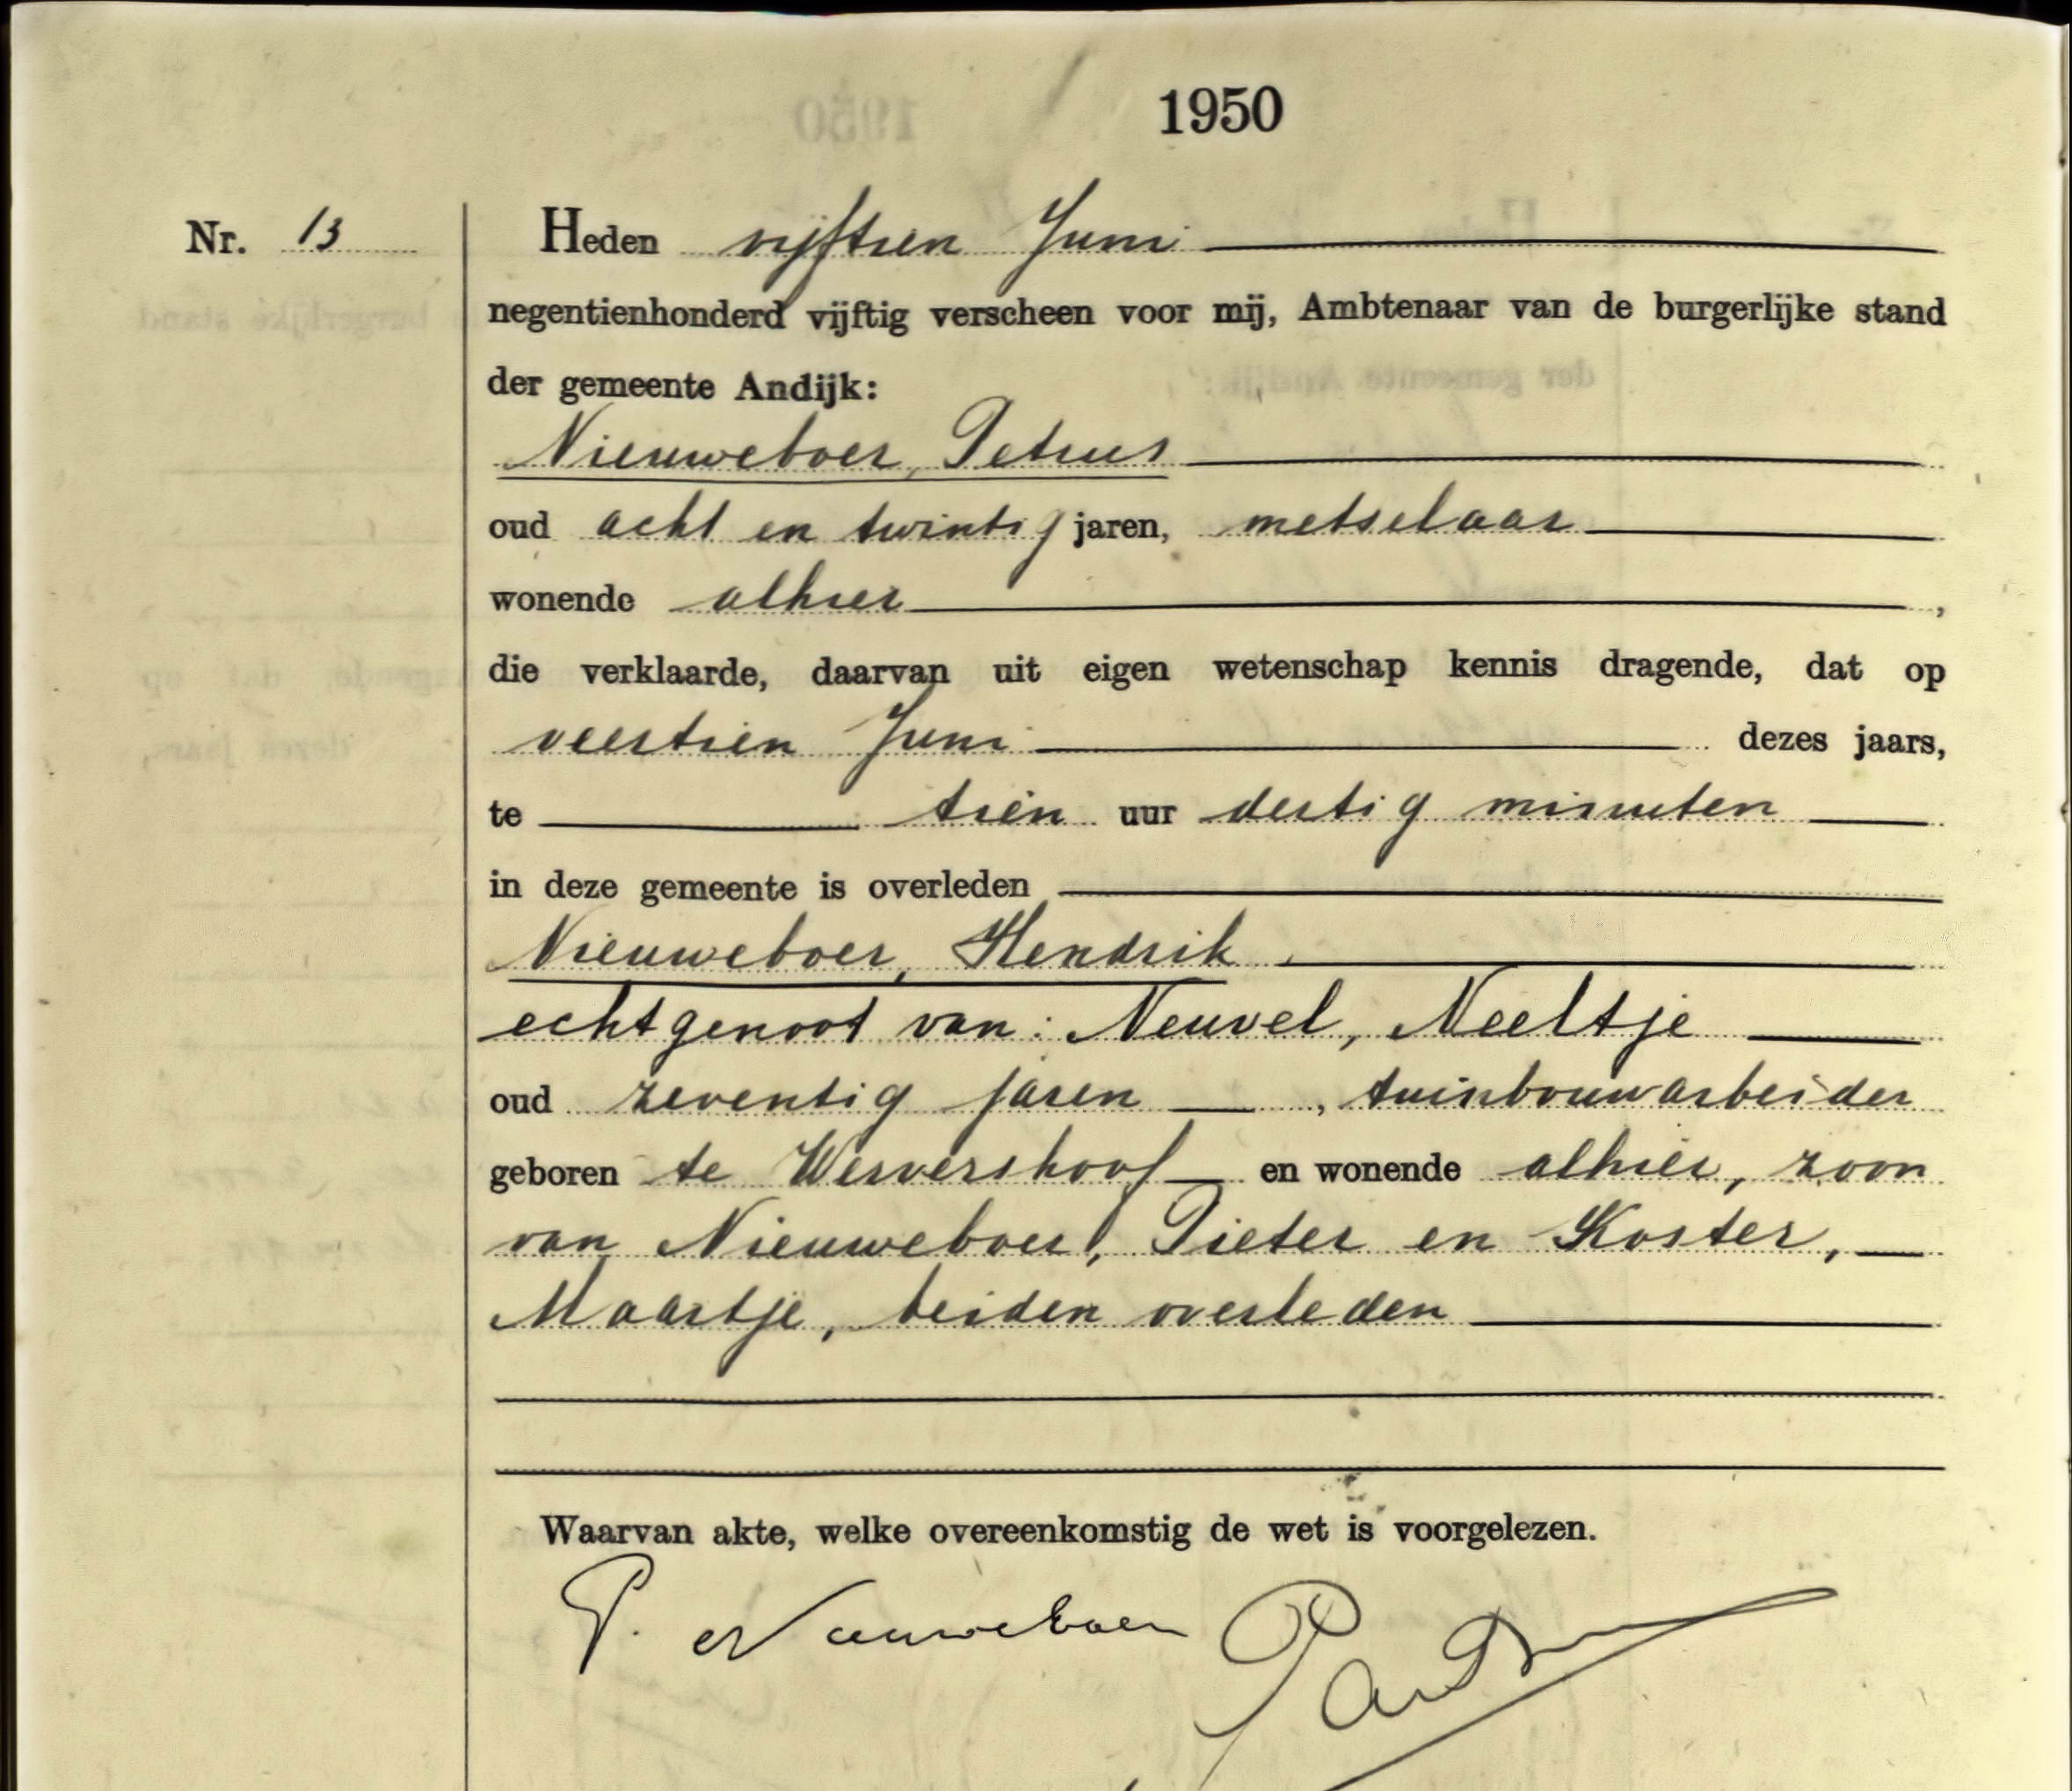 1950
Nr. 13
Heden vijftien Juni
negentienhonderd vijftig verscheen voor mij, Ambtenaar van de burgerlijke stand
der gemeente Andijk:
Nieuweboer, Petrus
oud acht en twintig jaren, metselaar
wonende alhier,
die verklaarde, daarvan uit eigen wetenschap kennis dragende, dat op
veertien Juni dezes jaars,
te tien uur dertig minuten
in deze gemeente is overleden
Nieuweboer, Hendrik
echtgenoot van: Neuvel, Neeltje
oud zeventig jaren, tuinbouwarbeider
geboren te Wervershoof en wonende alhier, zoon
van Nieuweboer, Pieter en Koster,
Maartje, beiden overleden
Waarvan akte, welke overeenkomstig de wet is voorgelezen.
P. Nieuweboer